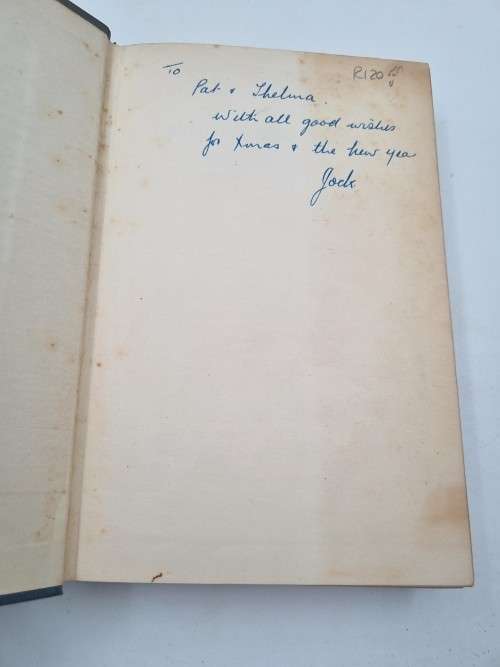 To R120
Pat & Thelma.
With all good wishes
for Xmas & the New Year
Jock